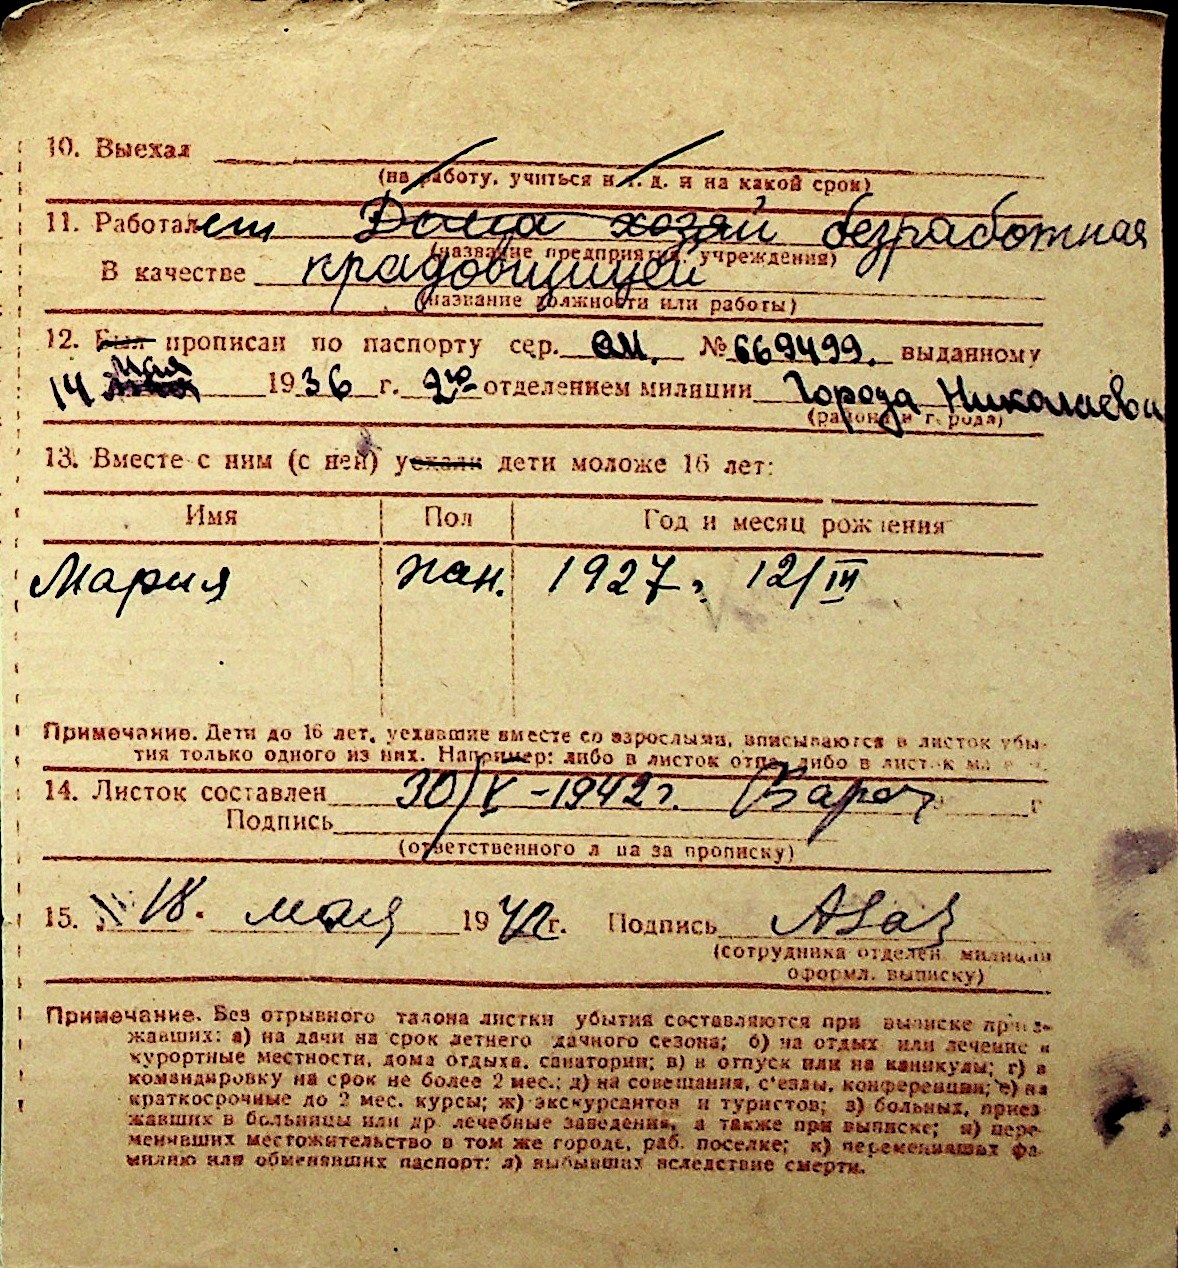 10. Выехал
(на работу, учиться и т. д. и на какой срок)
11. Работал Дома хозяй безработная
(название предприятия, учреждения)
В качестве крадовщицей
(название должности или работы)
12. Был прописан по паспорту сер. ОМ. № 669499. выданному
мая
14 1936 г. 2ю отделением милиции Города Николаева
(района и города)
13. Вместе с ним (с ней) уехали дети моложе 16 лет:
Имя Пол Год и месяц рождения
Мария жен. 1927 г. 12/III
Примечание. Дети до 16 лет, уехавшие вместе со взрослыми, вписываются в листок убы-
тия только одного из них. Например: либо в листок отца, либо в листок
14. Листок составлен 30/V - 1942 г. г
Подпись
(ответственного лица за прописку)
15. 18. мая 1942 г. Подпись
(сотрудника отделен. милиции
оформл. выписку)
Примечание. Без отрывного талона листки убытия составляются при выписке приез-
жавших: а) на дачи на срок летнего дачного сезона; б) на отдых или лечение в
курортные местности, дома отдыха, санатории; в) в отпуск или на каникулы; г) в
командировку на срок не более 2 мес.; д) на совещания, с'езды, конференции; е) на
краткосрочные до 2 мес. курсы; ж) экскурсантов и туристов; з) больных, приез
жавших в больницы или др. лечебные заведения, а также при выписке; и) пере-
менивших местожительство в том же городе, раб. поселке; к) переменивших фа-
милию или обменявших паспорт; л) выбывших вследствие смерти.